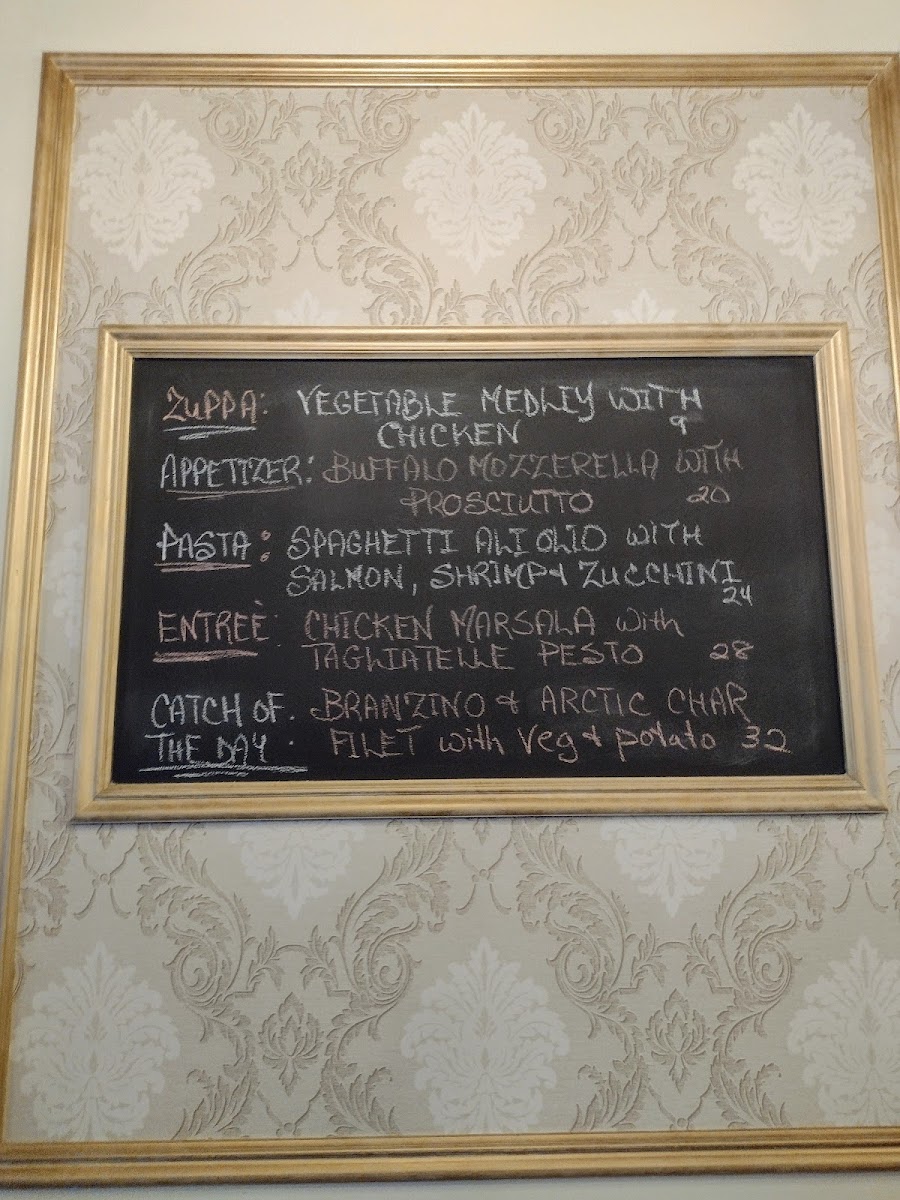 ZUPPA: VEGETABLE MEDLIY WITH
CHICKEN 9
APPETIZER: BUFFALO MOZZERELLA WITH
PROSCIUTTO 20
PASTA: SPAGHETTI ALI OLIO WITH
SALMON, SHRIMP & ZUCCHINI
24
ENTREÈ: CHICKEN MARSALA with
TAGLIATELLE PESTO 28
CATCH OF BRANZINO & ARCTIC CHAR
THE DAY: FILET with Veg & potato 32